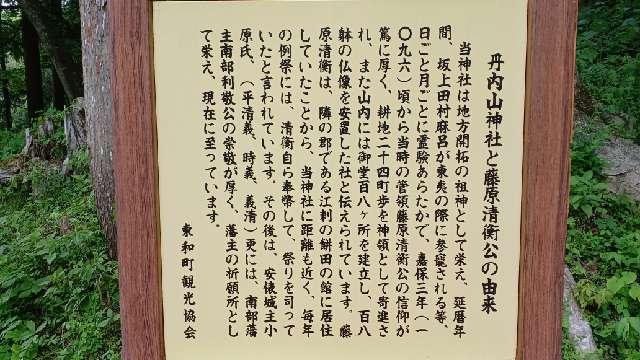 丹内山神社と藤原清衡公の由来
当神社は地方開拓の祖神として栄え、延暦年
間、坂上田村麻呂が東夷の際に参寵される等、
日ごと月ごとに霊験あらたかで、嘉保三年(一
〇九六)頃から当時の管領藤原清衡公の信仰が
篤に厚く、耕地二十四町歩を神領として寄進さ
れ、また山内には御堂百八ヶ所を建立し、百八
躰の仏像を安置した社と伝えられています。藤
原清衡は、隣の郡である江刺の餅田の館に居住
していたことから、当神社に距離も近く、毎年
の例祭には、清衡自ら奉幣して、祭りを司って
いたと言われています。その後は、安俵城主小
原氏、(平清義、時義、義清)更には、南部藩
主南部利敬公の崇敬が厚く、藩主の祈願所とし
て栄え、現在に至っています。
東和町観光協会